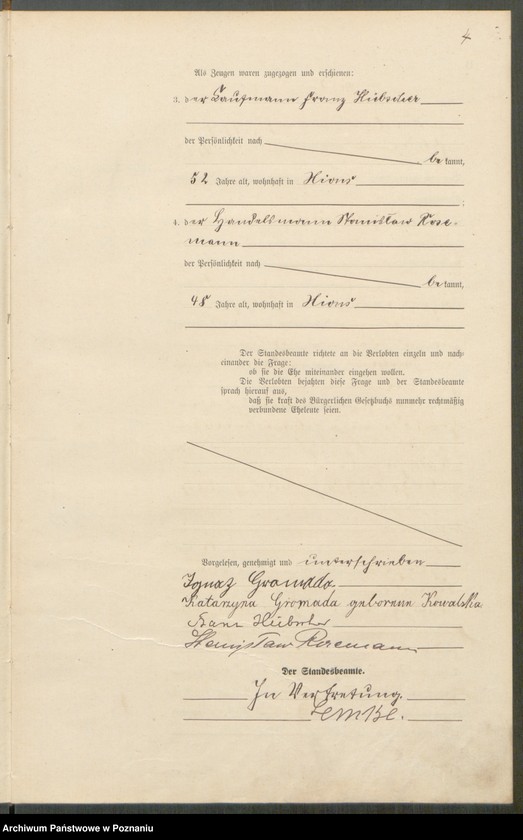 4
Als Zeugen waren zugezogen und erschienen:
3. der Kaufmann Franz Hübscher
der Persönlichkeit nach
be kannt,
52 Jahre alt, wohnhaft in Xions
;
4. der Handelsmann Stanislaw Rose-
mann
der Persönlichkeit nach
be kannt,
48 Jahre alt, wohnhaft in Xions
Der Standesbeamte richtete an die Verlobten einzeln und nach-
einander die Frage:
ob sie die Ehe miteinander eingehen wollen.
Die Verlobten bejahten diese Frage und der Standesbeamte
sprach hierauf aus,
daß sie kraft des Bürgerlichen Gesetzbuchs nunmehr rechtmäßig
verbundene Eheleute seien.
Vorgelesen, genehmigt und unterschrieben
Ignaz Gromada
Katarzyna Gromada geborene Kowalska
Franz Hübscher
Stanisław Rosemann
Der Standesbeamte.
In Vertretung.
Lemke.
Archiwum Państwowe w Poznaniu